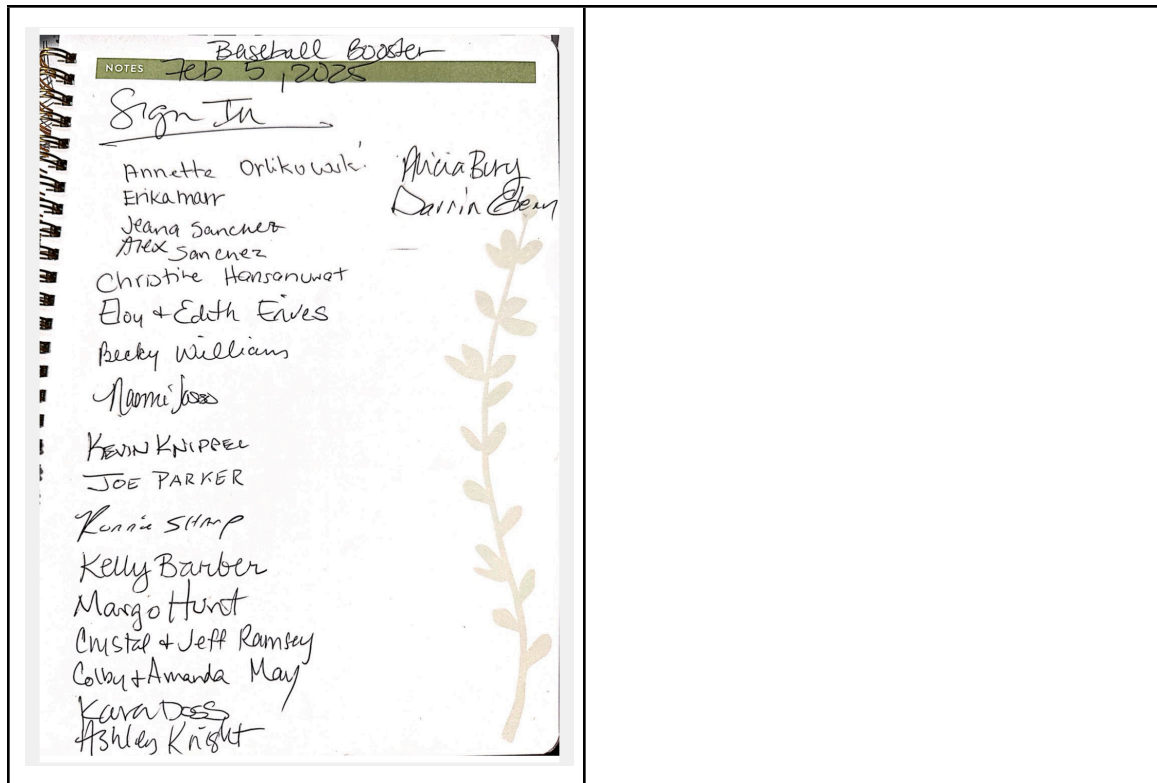 Baseball Booster
NOTES Feb 5, 2025
Sign In
Annette Orlikowski
Erika marr
Jeana Sanchez
Alex Sanchez
Christine Hansanuwat
Eloy + Edith Enves
Becky Williams
Naomi
KEVIN KNIPPEL
JOE PARKER
Ronnie SHARP
Kelly Barber
Margo Hunt
Crystal + Jeff Ramsey
Colby + Amanda May
Kara Doss
Ashley Knight
Alicia Bury
Darrin